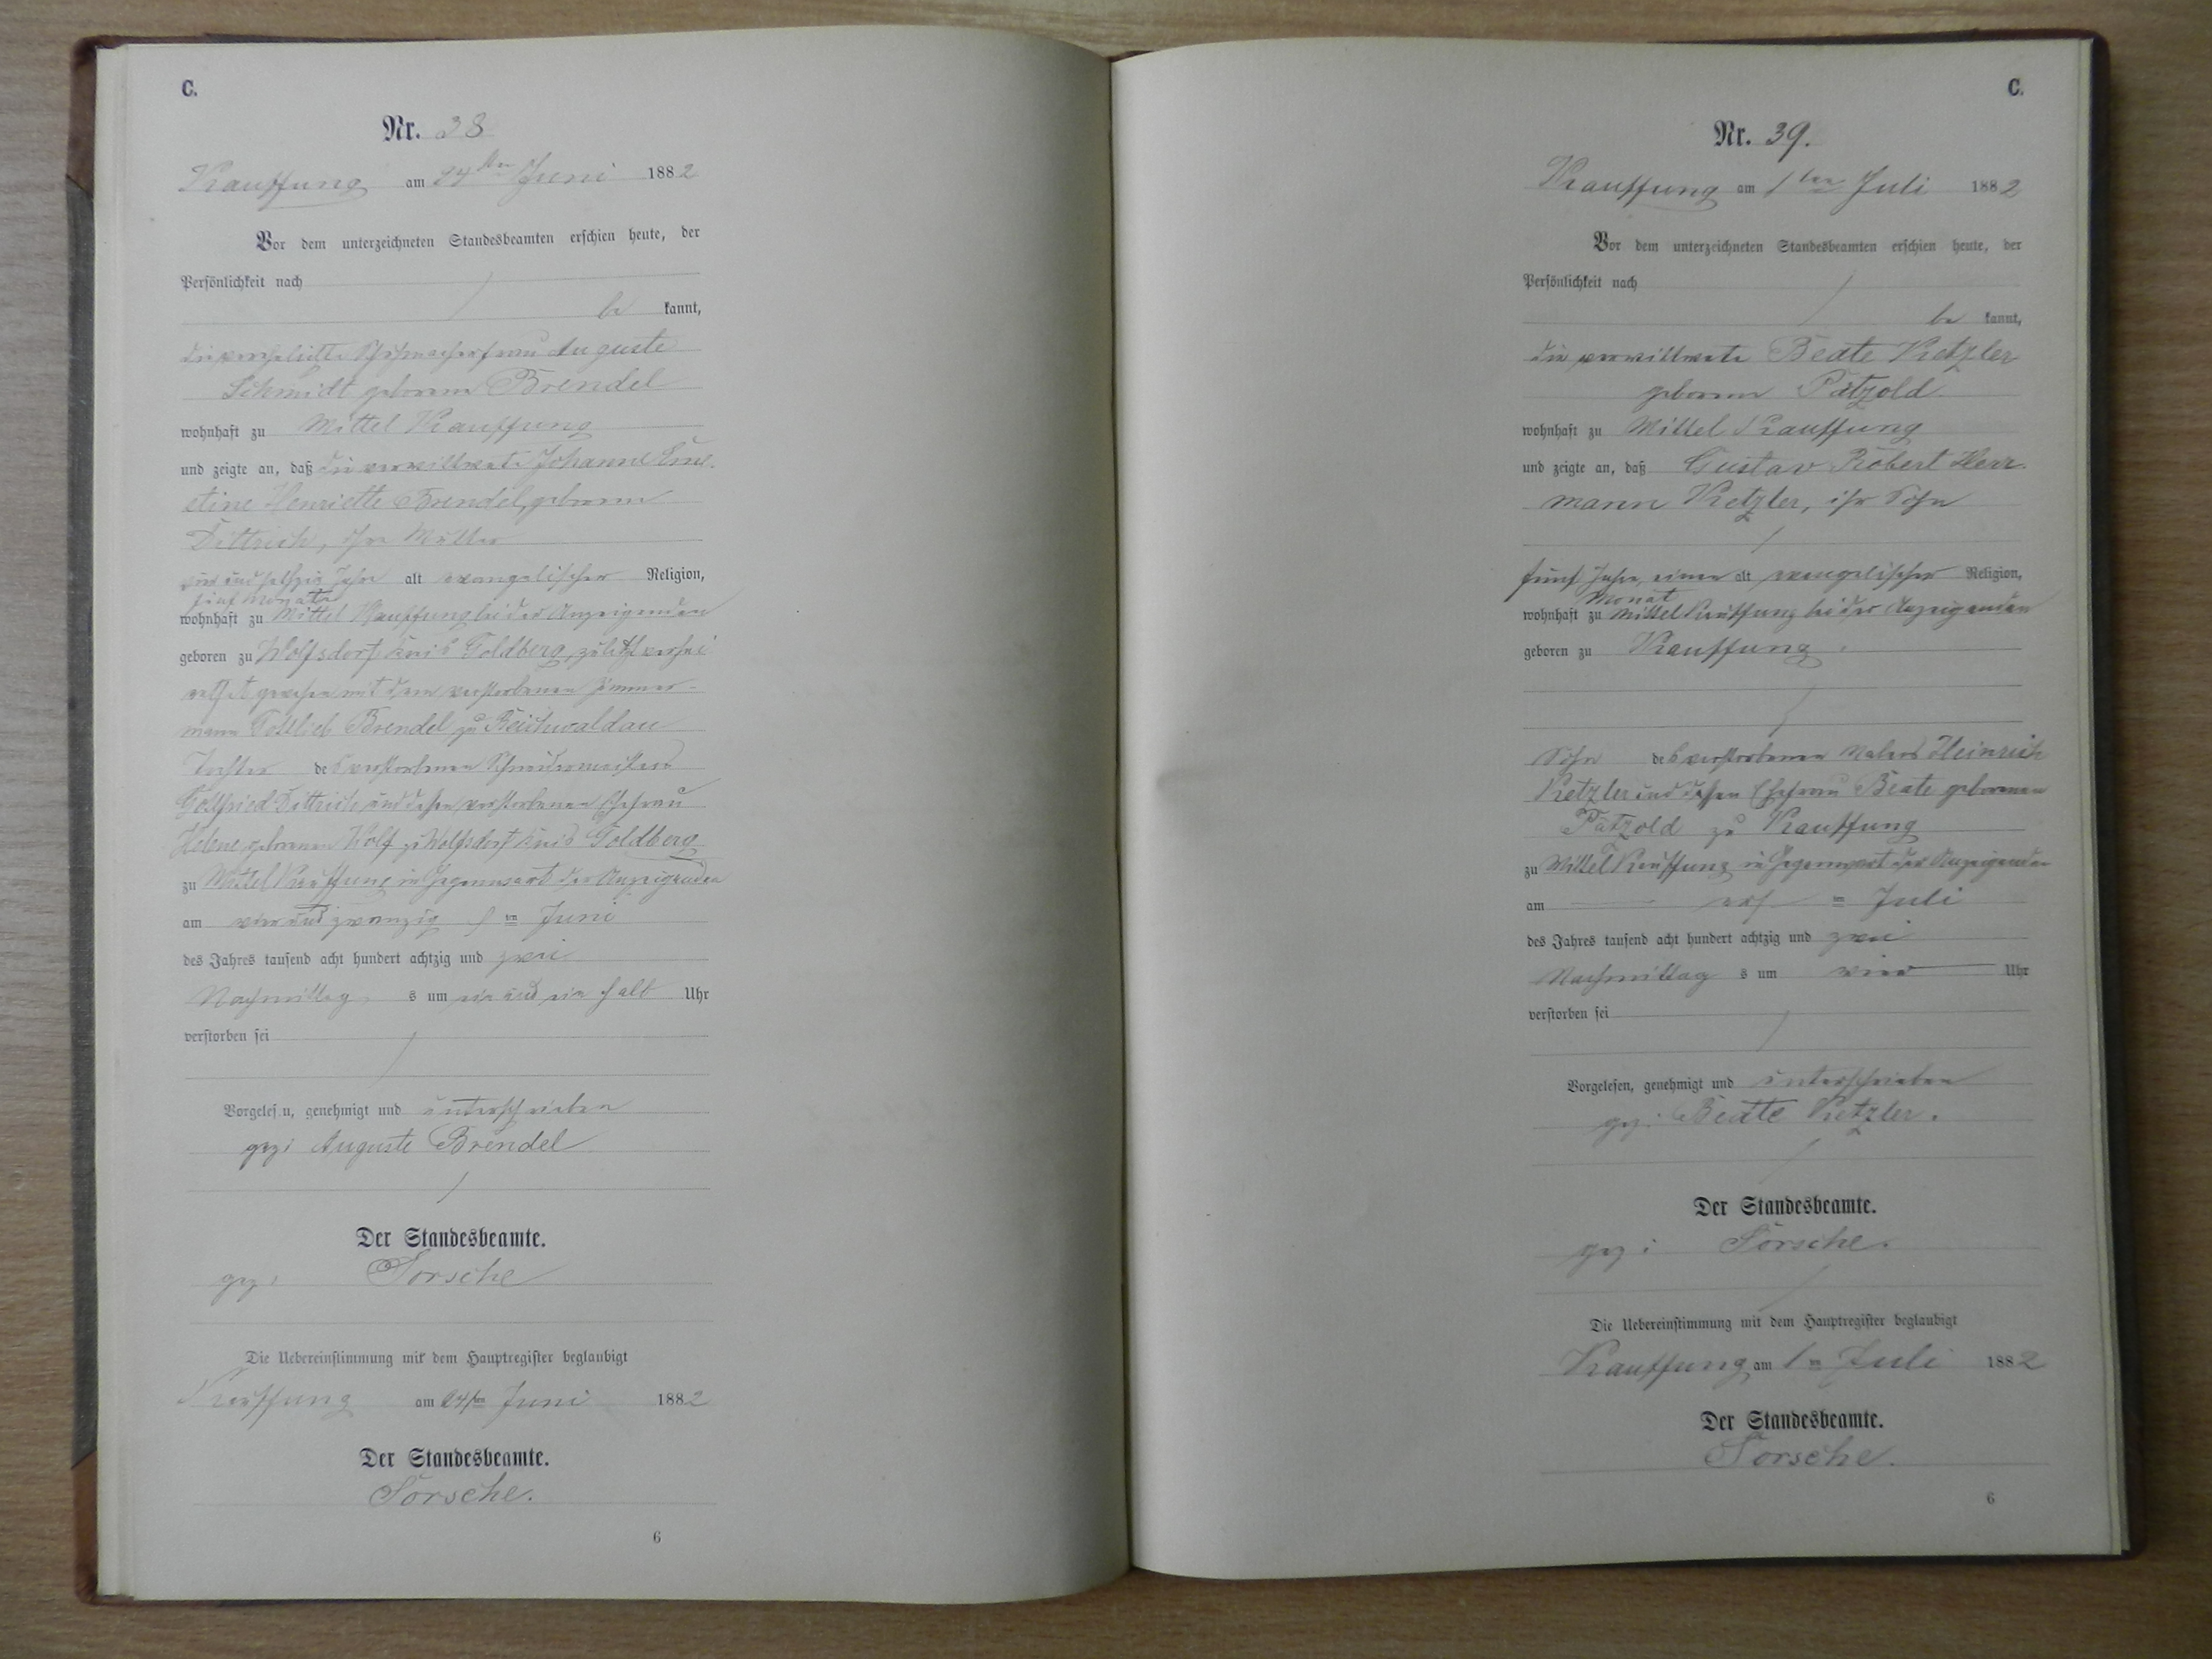 C.
Nr. 38
Kauffung am 24ten Juni 1882
Vor dem unterzeichneten Standesbeamten erschien heute, der
Persönlichkeit nach
be kannt,
die verehelichte Schuhmacherfrau Auguste
Schmidt geborene Brendel
wohnhaft zu Mittel Kauffung
und zeigte an, daß die verwittwete Johanne Erne-
stine Henriette Brendel, geborene
Dittrich, ihre Mutter
vier und sechszig Jahre alt evangelischer Religion,
fünf Monate
wohnhaft zu Mittel Kauffung bei der Anzeigenden
geboren zu Wolfsdorf Kreis Goldberg, zuletzt verhei-
rathet gewesen mit dem verstorbenen Zimmer-
mann Gottlieb Brendel zu Reichwaldau
Tochter des verstorbenen Schneidermeisters
Gottfried Dittrich und dessen verstorbenen Ehefrau
Helene geborenen Wolf zu Wolfsdorf Kreis Goldberg
zu Mittel Kauffung in Gegenwart der Anzeigenden
am vier und zwanzig sten Juni
des Jahres tausend acht hundert achtzig und zwei
Nachmittag s um ein und ein halb Uhr
verstorben sei
Vorgelesen, genehmigt und unterschrieben
gez: Auguste Brendel
Der Standesbeamte.
gez: Sorsche
Die Uebereinstimmung mit dem Hauptregister beglaubigt
Kauffung am 24ten Juni 1882
Der Standesbeamte.
Sorsche.
6
C.
Nr. 39.
Kauffung am 1ten Juli 1882
Vor dem unterzeichneten Standesbeamten erschien heute, der
Persönlichkeit nach
be kannt,
die verwittwete Beate Kretzler
geborene Pätzold
wohnhaft zu Mittel Kauffung
und zeigte an, daß Gustav Robert Herr-
mann Kretzler, ihr Sohn
fünf Jahre, einen alt evangelischer Religion,
Monat
wohnhaft zu Mittel Kauffung bei der Anzeigenden
geboren zu Kauffung
Sohn des verstorbenen Malers Heinrich
Kretzler und dessen Ehefrau Beate geborenen
Pätzold zu Kauffung
zu Mittel Kauffung in Gegenwart der Anzeigenden
am ersten Juli
des Jahres tausend acht hundert achtzig und zwei
Nachmittag s um vier Uhr
verstorben sei
Vorgelesen, genehmigt und unterschrieben
gez: Beate Kretzler.
Der Standesbeamte.
gez: Sorsche.
Die Uebereinstimmung mit dem Hauptregister beglaubigt
Kauffung am 1ten Juli 1882
Der Standesbeamte.
Sorsche.
6